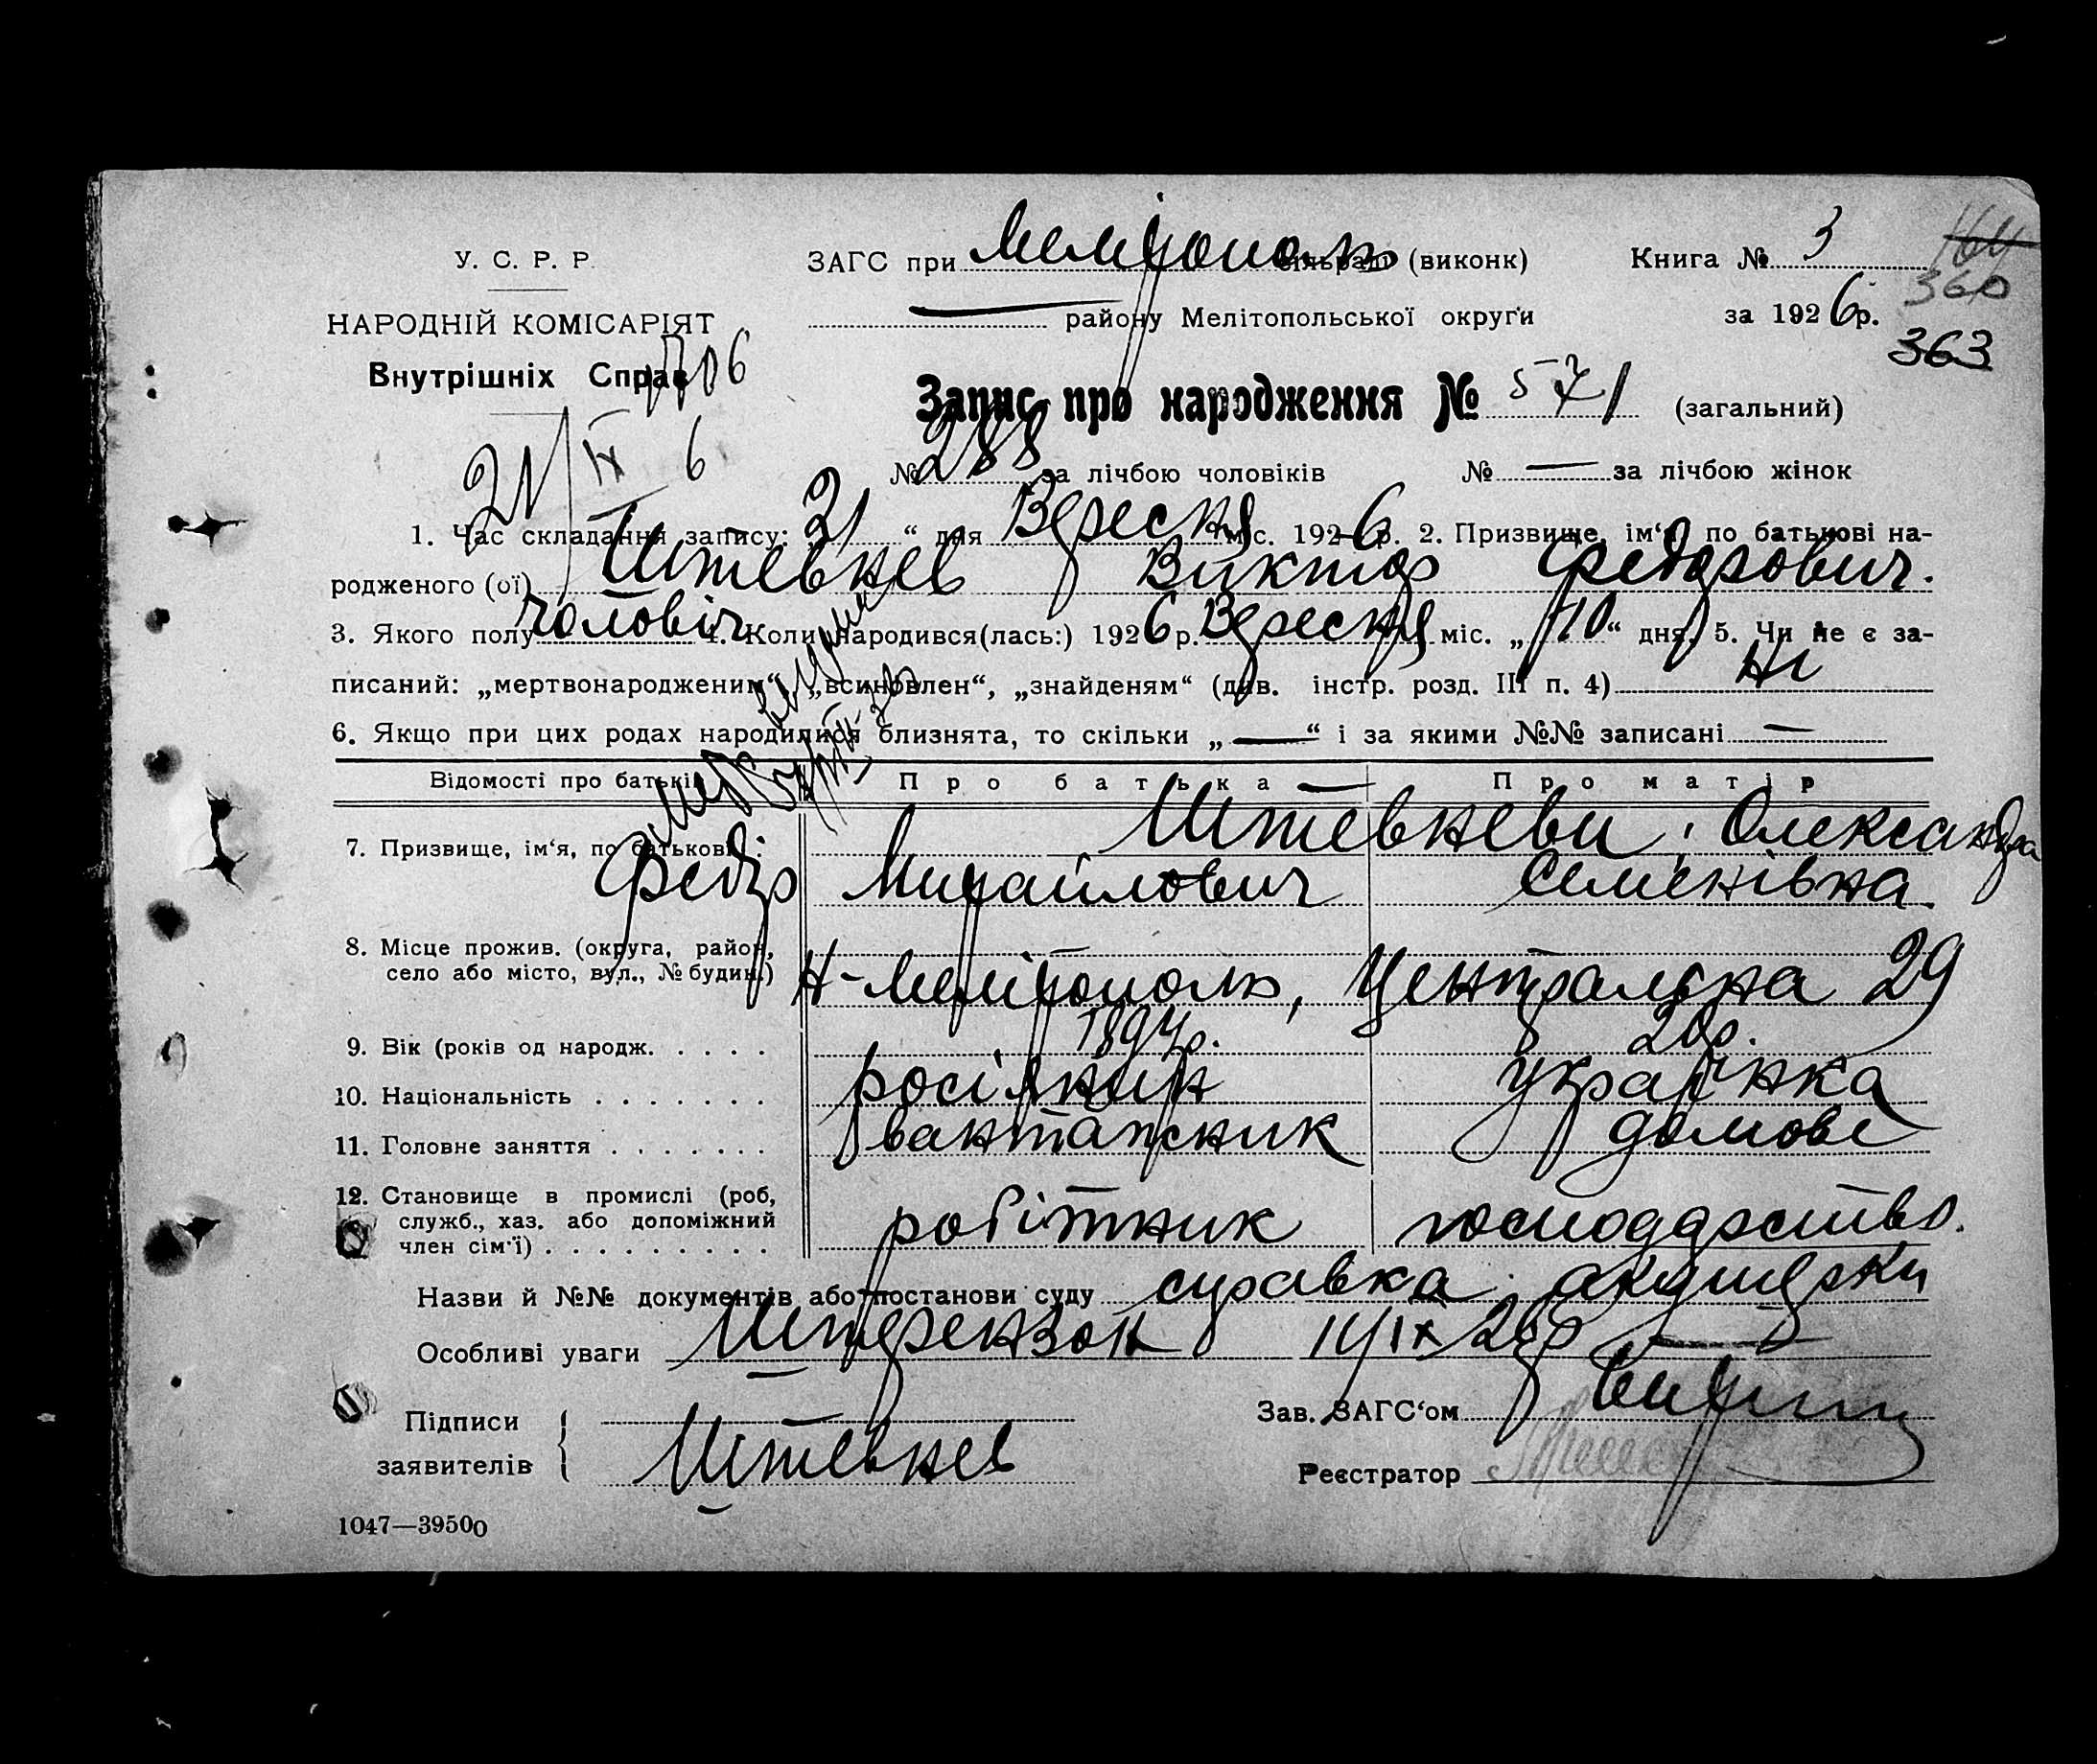 У. С. Р. Р.
НАРОДНІЙ КОМІСАРІЯТ
Внутрішніх Справ
ЗАГС при Мелітополь сільраді (виконк)
— району Мелітопольської округи
Книга № 3
за 1926 р.
360
363
Запис про народження № 571 (загальний)
№ 288 за лічбою чоловіків № — за лічбою жінок
21/IX 6
1. Час складання запису: „21“ дня Вересня міс. 1926 р. 2. Призвище, ім‘я, по батькові на-
родженого (ої) Штевнев Виктор Федорович.
3. Якого полу чоловіч 4. Коли народився(лась:) 1926 р. Вересня міс. „10“ дня, 5. Чи не є за-
писаний: „мертвонародженим“, „всиновлен“, „знайденям“ (див. інстр. розд. III п. 4) Ні
6. Якщо при цих родах народилися близнята, то скільки „—“ і за якими №№ записані —
Відомості про батьків Про батька — Про матір
7. Призвище, ім‘я, по батькові: Штевневи, Олександра
Федір Михайлович Семенівна.
8. Місце прожив. (округа, район,
село або місто, вул., № будин.) Н-Мелітополь, Центральна 29
9. Вік (років од народж. . . . . 1894р. 20р.
10. Національність . . . . . . . росіянин українка
11. Головне заняття . . . . . . . вантажник домове
12. Становище в промислі (роб,
служб., хаз. або допоміжний
член сім‘ї) . . . . . . . . . робітник господарство.
Назви й №№ документів або постанови суду справка акушерки
Особливі уваги Штерензон 14/IX 26р —
Підписи
заявителів Штевнев
Зав. ЗАГС‘ом
Реєстратор
1047—39500